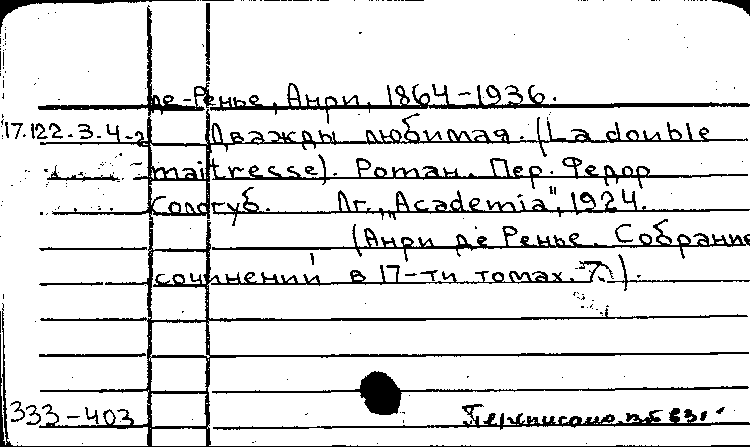 де-Ренье, Анри, 1864-1936.
17.122.3.4-2 Дважды любимая. (La double
maitresse). Роман. Пер. Федор
Сологуб. Лг., „Academia", 1924.
(Анри де Ренье. Собрание
сочинений в 17-ти томах. 7.).
333-403 Переписано